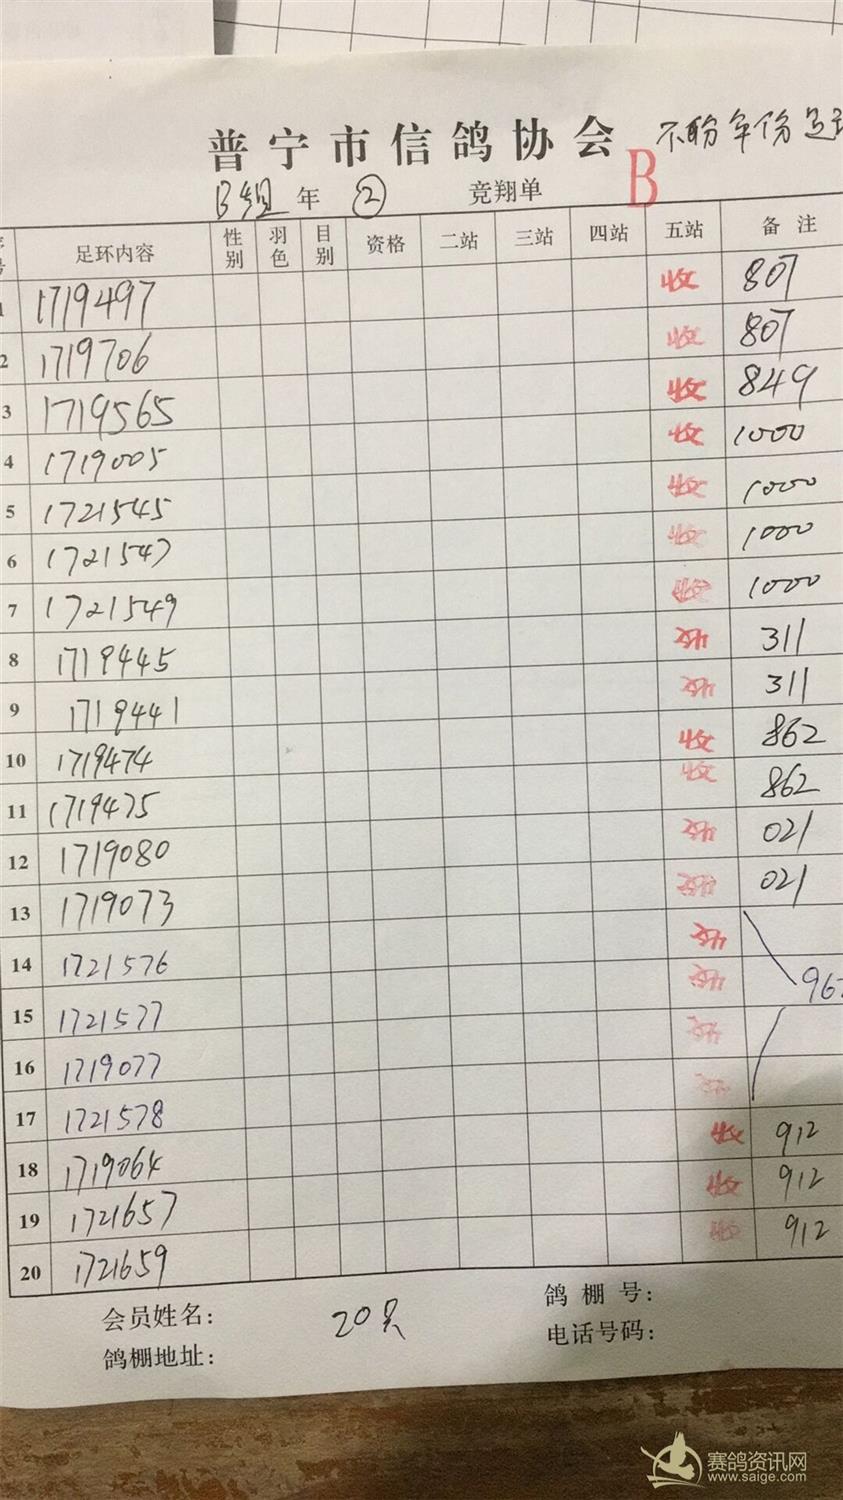 普宁市信鸽协会 不盼年份
B组 年 ② 竞翔单 B
号 足环内容 性别 羽色 目别 资格 二站 三站 四站 五站 备注
1 1719497 收 807
2 1719706 收 807
3 1719565 收 849
4 1719005 收 1000
5 1721545 收 1000
6 1721547 收 1000
7 1721549 收 1000
8 1719445 收 311
9 1719441 收 311
10 1719474 收 862
11 1719475 收 862
12 1719080 收 021
13 1719073 收 021
14 1721576 收
15 1721577 收 96
16 1719077 收
17 1721578 收
18 1719064 收 912
19 1721657 收 912
20 1721659 收 912
会员姓名: 20只 鸽棚号:
鸽棚地址: 电话号码:
赛鸽资讯网
www.saige.com